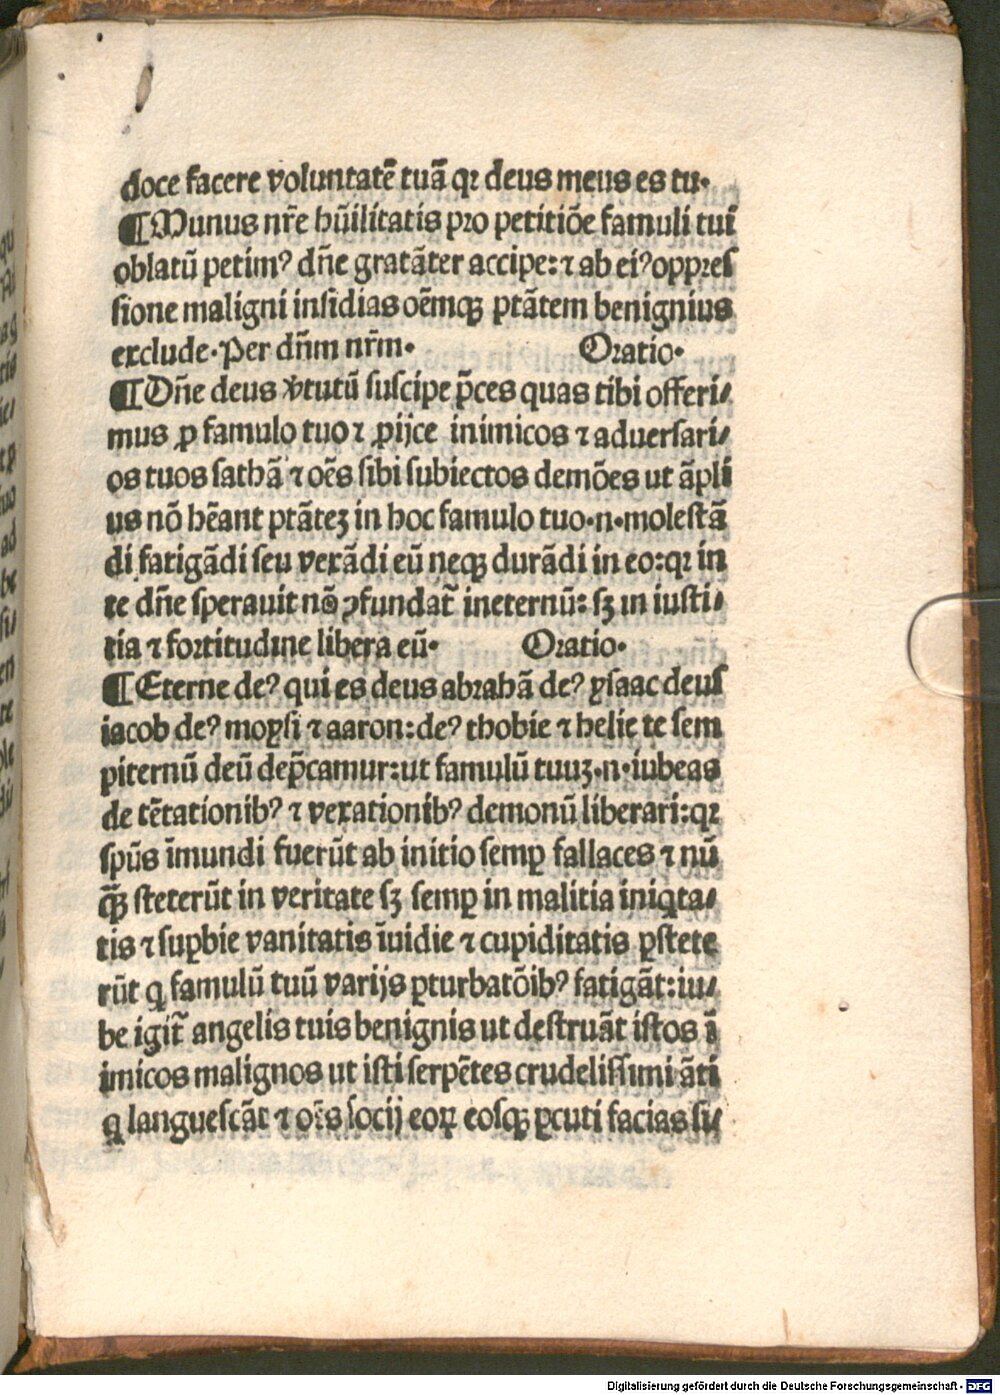 doce facere voluntatē tuā qꝛ deus meus es tu.
¶Munus nr̄e hūilitatis pro petitiōe famuli tui
oblatū petimꝰ dn̄e gratāter accipe: ⁊ ab eiꝰ oppreſ
ſione maligni inſidias oēmqꝫ ptātem benignius
exclude. Per dn̄m nr̄m. Oratio.
¶Dn̄e deus v̄tutū ſuſcipe p̄ces quas tibi offeri⸗
mus ꝓ famulo tuo ⁊ ꝓijce inimicos ⁊ aduerſari⸗
os tuos ſathā ⁊ oēs ſibi ſubiectos demōes ut āpli
us nō hēant ptāteꝫ in hoc famulo tuo .n. moleſtā
di fatigādi ſeu vexādi eū neqꝫ durādi in eo: qꝛ in
te dn̄e ſperauit nō ꝯfundat̄ ineternū: ſꝫ in iuſti⸗
tia ⁊ fortitudine libera eū. Oratio.
¶Eterne deꝰ qui es deus abrahā deꝰ yſaac deuſ
iacob deꝰ moyſi ⁊ aaron: deꝰ thobie ⁊ helie te ſem
piternū deū dep̄camur: ut famulū tuuꝫ .n. iubeas
de tētationibꝰ ⁊ vexationibꝰ demonū liberari: qꝛ
ſpūs īmundi fuerūt ab initio ſemꝑ fallaces ⁊ nū
qꝫ̄ ſteterūt in veritate ſꝫ ſemꝑ in malitia iniqta⸗
tis ⁊ ſuꝑbie vanitatis īuidie ⁊ cupiditatis ꝑſtete
rūt ꝗ famulū tuū varijs ꝑturbatōibꝰ fatigāt: iu⸗
be igit̄ angelis tuis benignis ut deſtruāt iſtos ī
imicos malignos ut iſti ſerpētes crudeliſſimi āti
ꝗ langueſcāt ⁊ oēs ſocij eoꝝ eoſqꝫ ꝑcuti facias ſu⸗
Digitalisierung gefördert durch die Deutsche Forschungsgemeinschaft - DFG